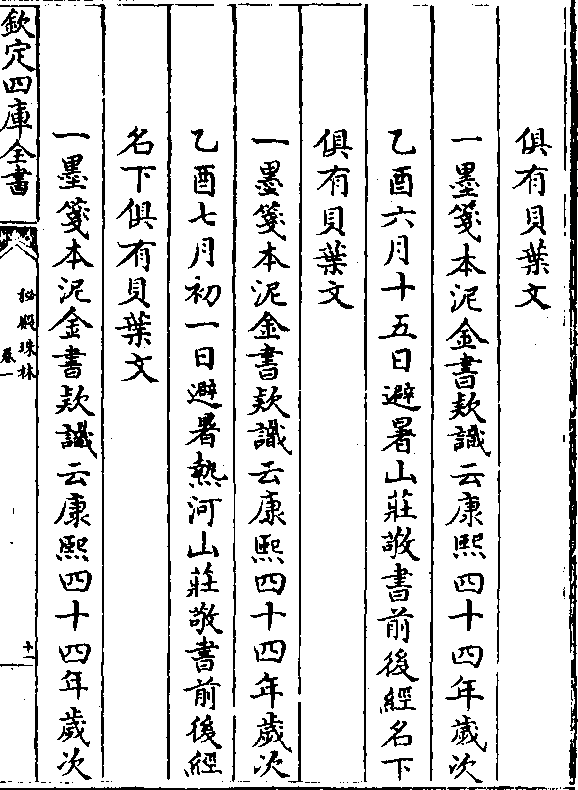 俱有貝葉文
一墨箋本泥金書欵識云康熙四十四年歲次
乙酉六月十五日避暑山莊敬書前後經名下
俱有貝葉文
一墨箋本泥金書欵識云康熙四十四年歲次
乙酉七月初一日避暑熱河山莊敬書前後經
名下俱有貝葉文
一墨箋本泥金書欵識云康熙四十四年歲次
欽定四庫全書
秘殿珠林
卷一
十一